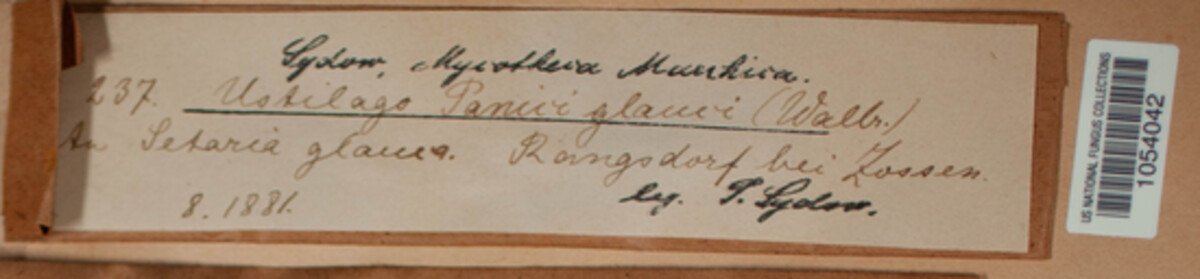 Sydow, Mycotheca Marchica.
237. Ustilago Panici glauci (Wallr.)
An Setaria glauca. Rangsdorf bei Zossen.
8. 1881.
leg. P. Sydow.
US NATIONAL FUNGUS COLLECTIONS
1054042